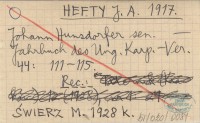 HEFTY J. A. 1917.
Johann Hunsdorfer sen. —
Jahrbuch des Ung. Karp.-Ver.
44: 111-115.
Rec.:
ŚWIERZ M. 1928 k.